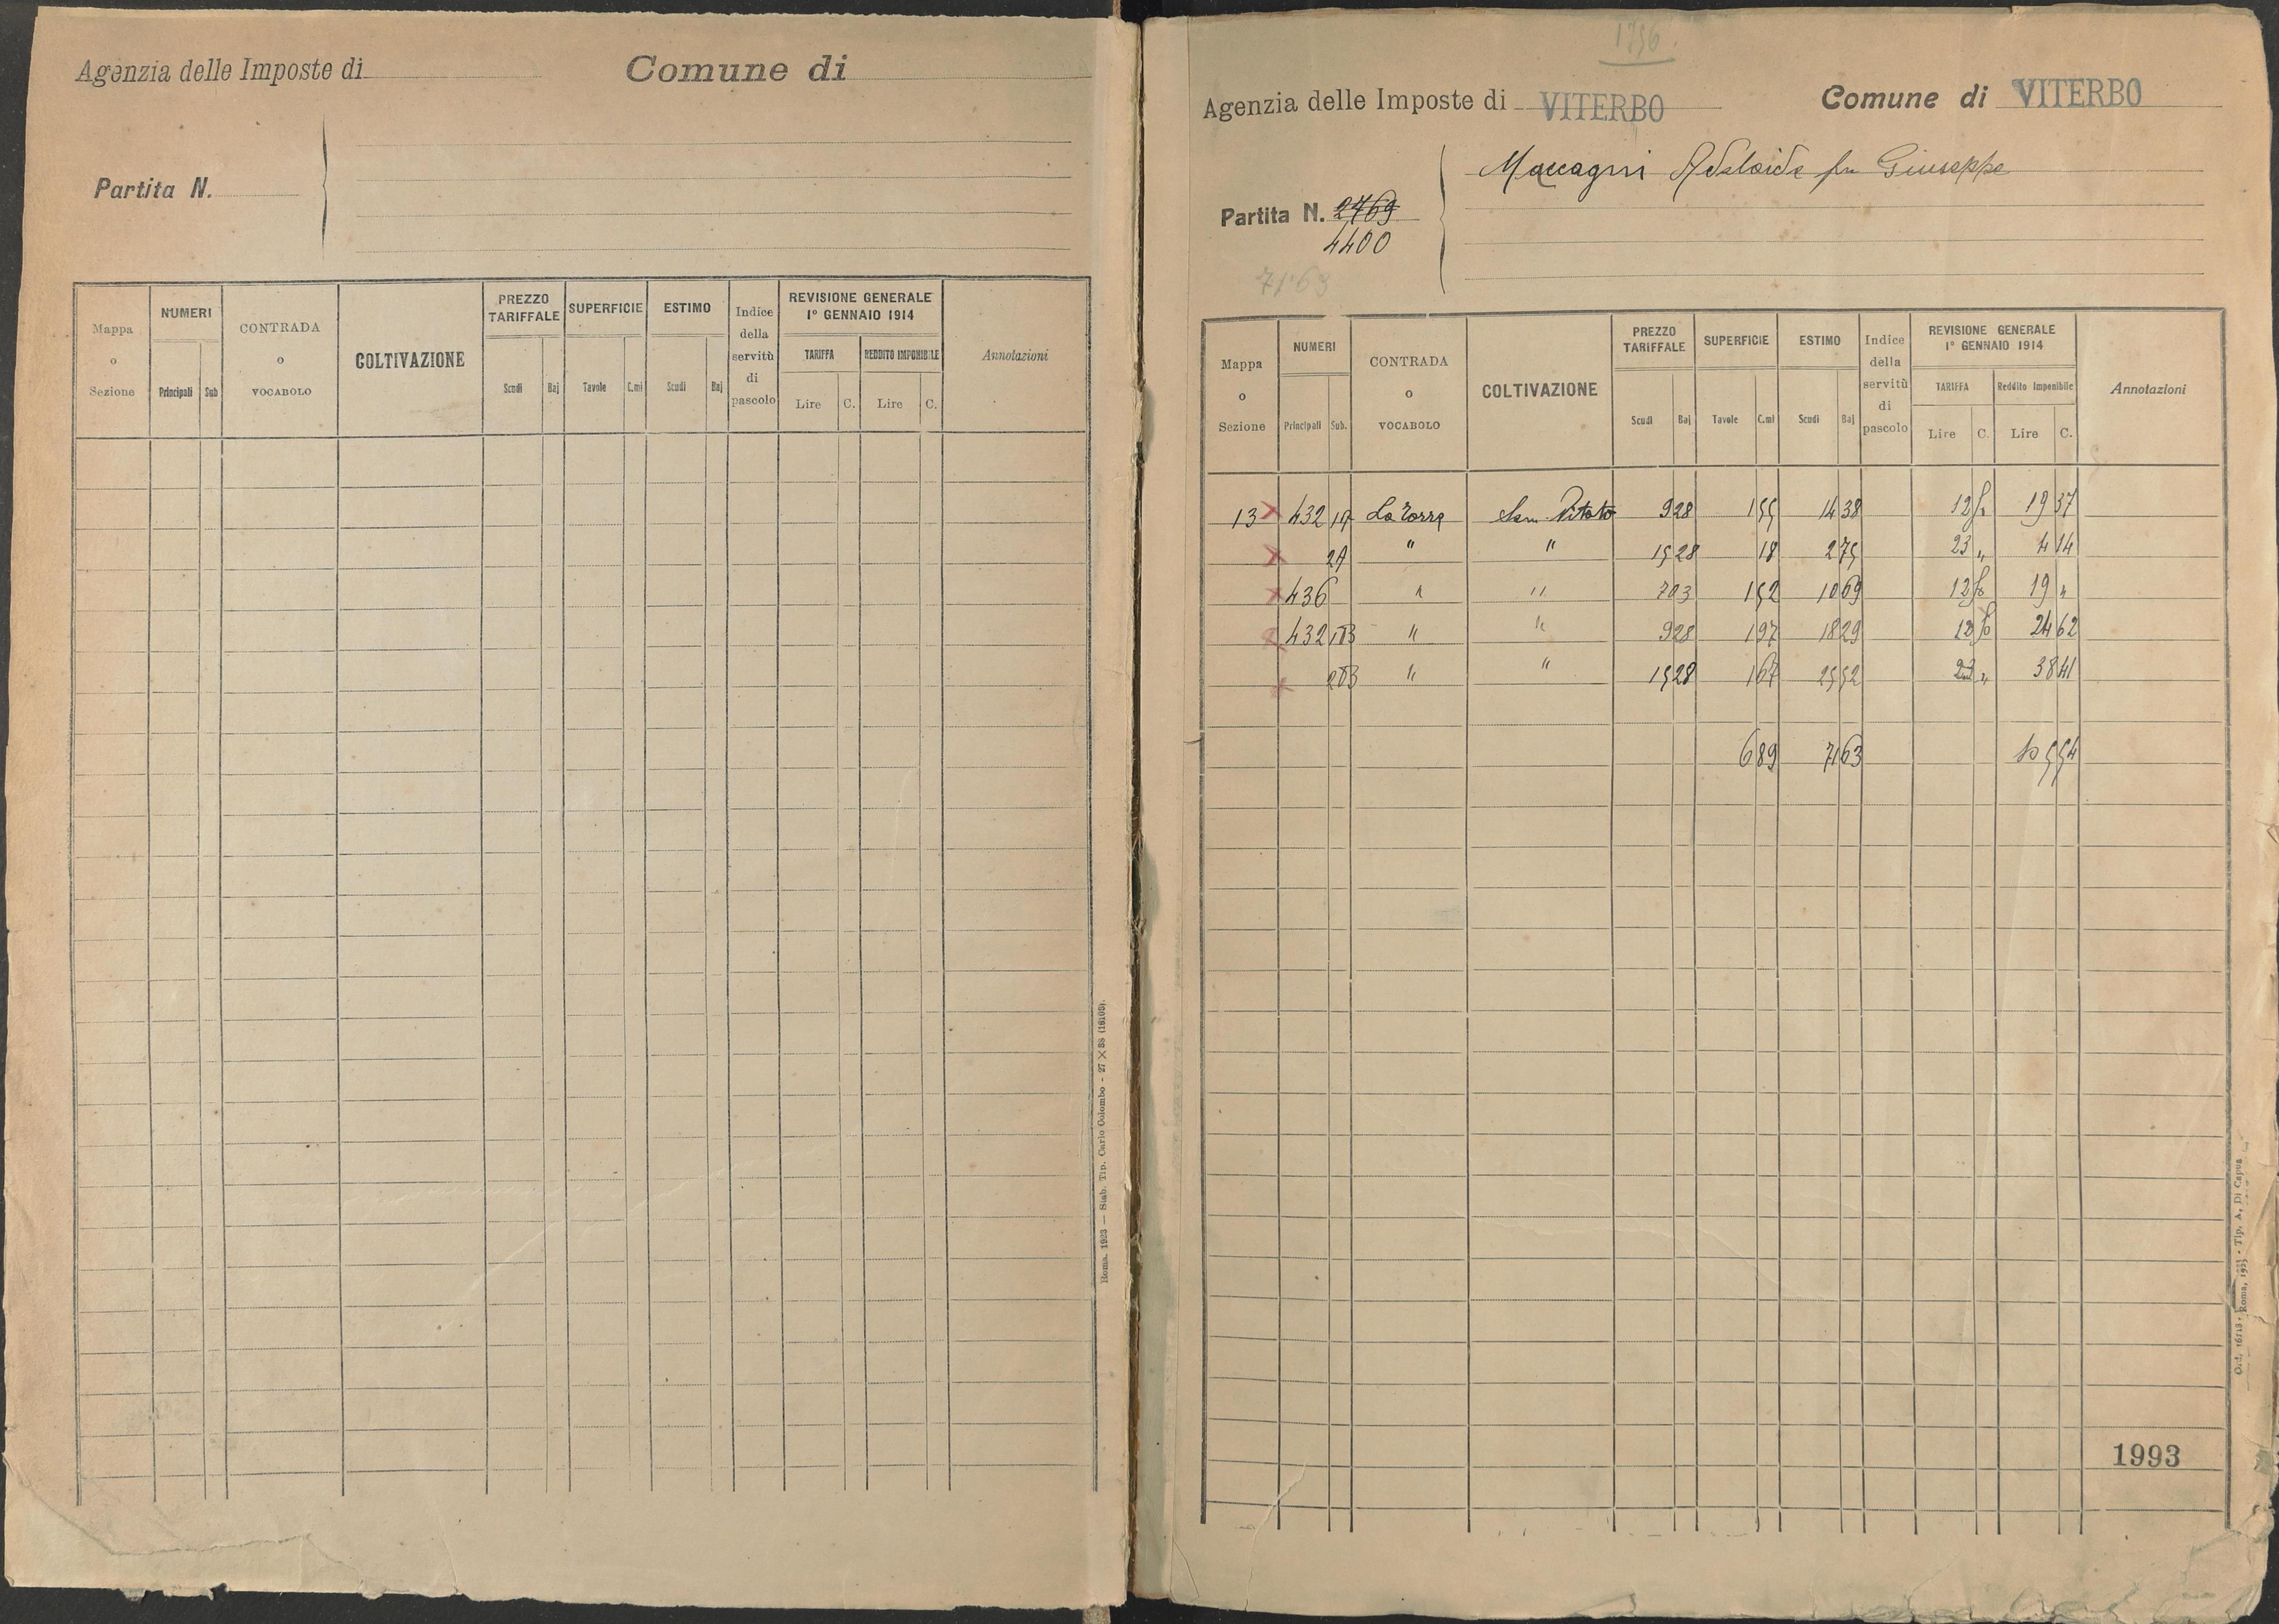 Agenzia delle Imposte di
Comune di
Partita N.
Mappa o Sezione
NUMERI
Principali Sub
CONTRADA o VOCABOLO
COLTIVAZIONE
PREZZO TARIFFALE
Scudi Baj
SUPERFICIE
Tavole C.mi
ESTIMO
Scudi Baj
Indice della servitù di pascolo
REVISIONE GENERALE 1° GENNAIO 1914
TARIFFA
Lire C.
REDDITO IMPONIBILE
Lire C.
Annotazioni
Roma, 1923 — Stab. Tip. Carlo Colombo - 27 × 38 (16103).
1796
Agenzia delle Imposte di VITERBO
Comune di VITERBO
Maccagni Adelaide fu Giuseppe
Partita N. 2769
4400
71.63
Mappa o Sezione
NUMERI
Principali Sub.
CONTRADA o VOCABOLO
COLTIVAZIONE
PREZZO TARIFFALE
Scudi Baj
SUPERFICIE
Tavole C.mi
ESTIMO
Scudi Baj
Indice della servitù di pascolo
REVISIONE GENERALE 1° GENNAIO 1914
TARIFFA
Lire C.
Reddito Imponibile
Lire C.
Annotazioni
13 x 432 1A La Torre Sem. Vitato 9 28 1 55 14 38 12 50 19 37
x 2A " " 15 28 18 2 75 23 " 4 14
x 436 " " 7 03 1 52 10 69 12 50 19 "
x 432 1B " " 9 28 1 97 18 29 12 50 24 62
x 2B " " 15 28 1 67 25 52 23 " 38 41
6 89 71 63 105 54
1993
Ord. 16113 - Roma, 1923 - Tip. A. Di Capua